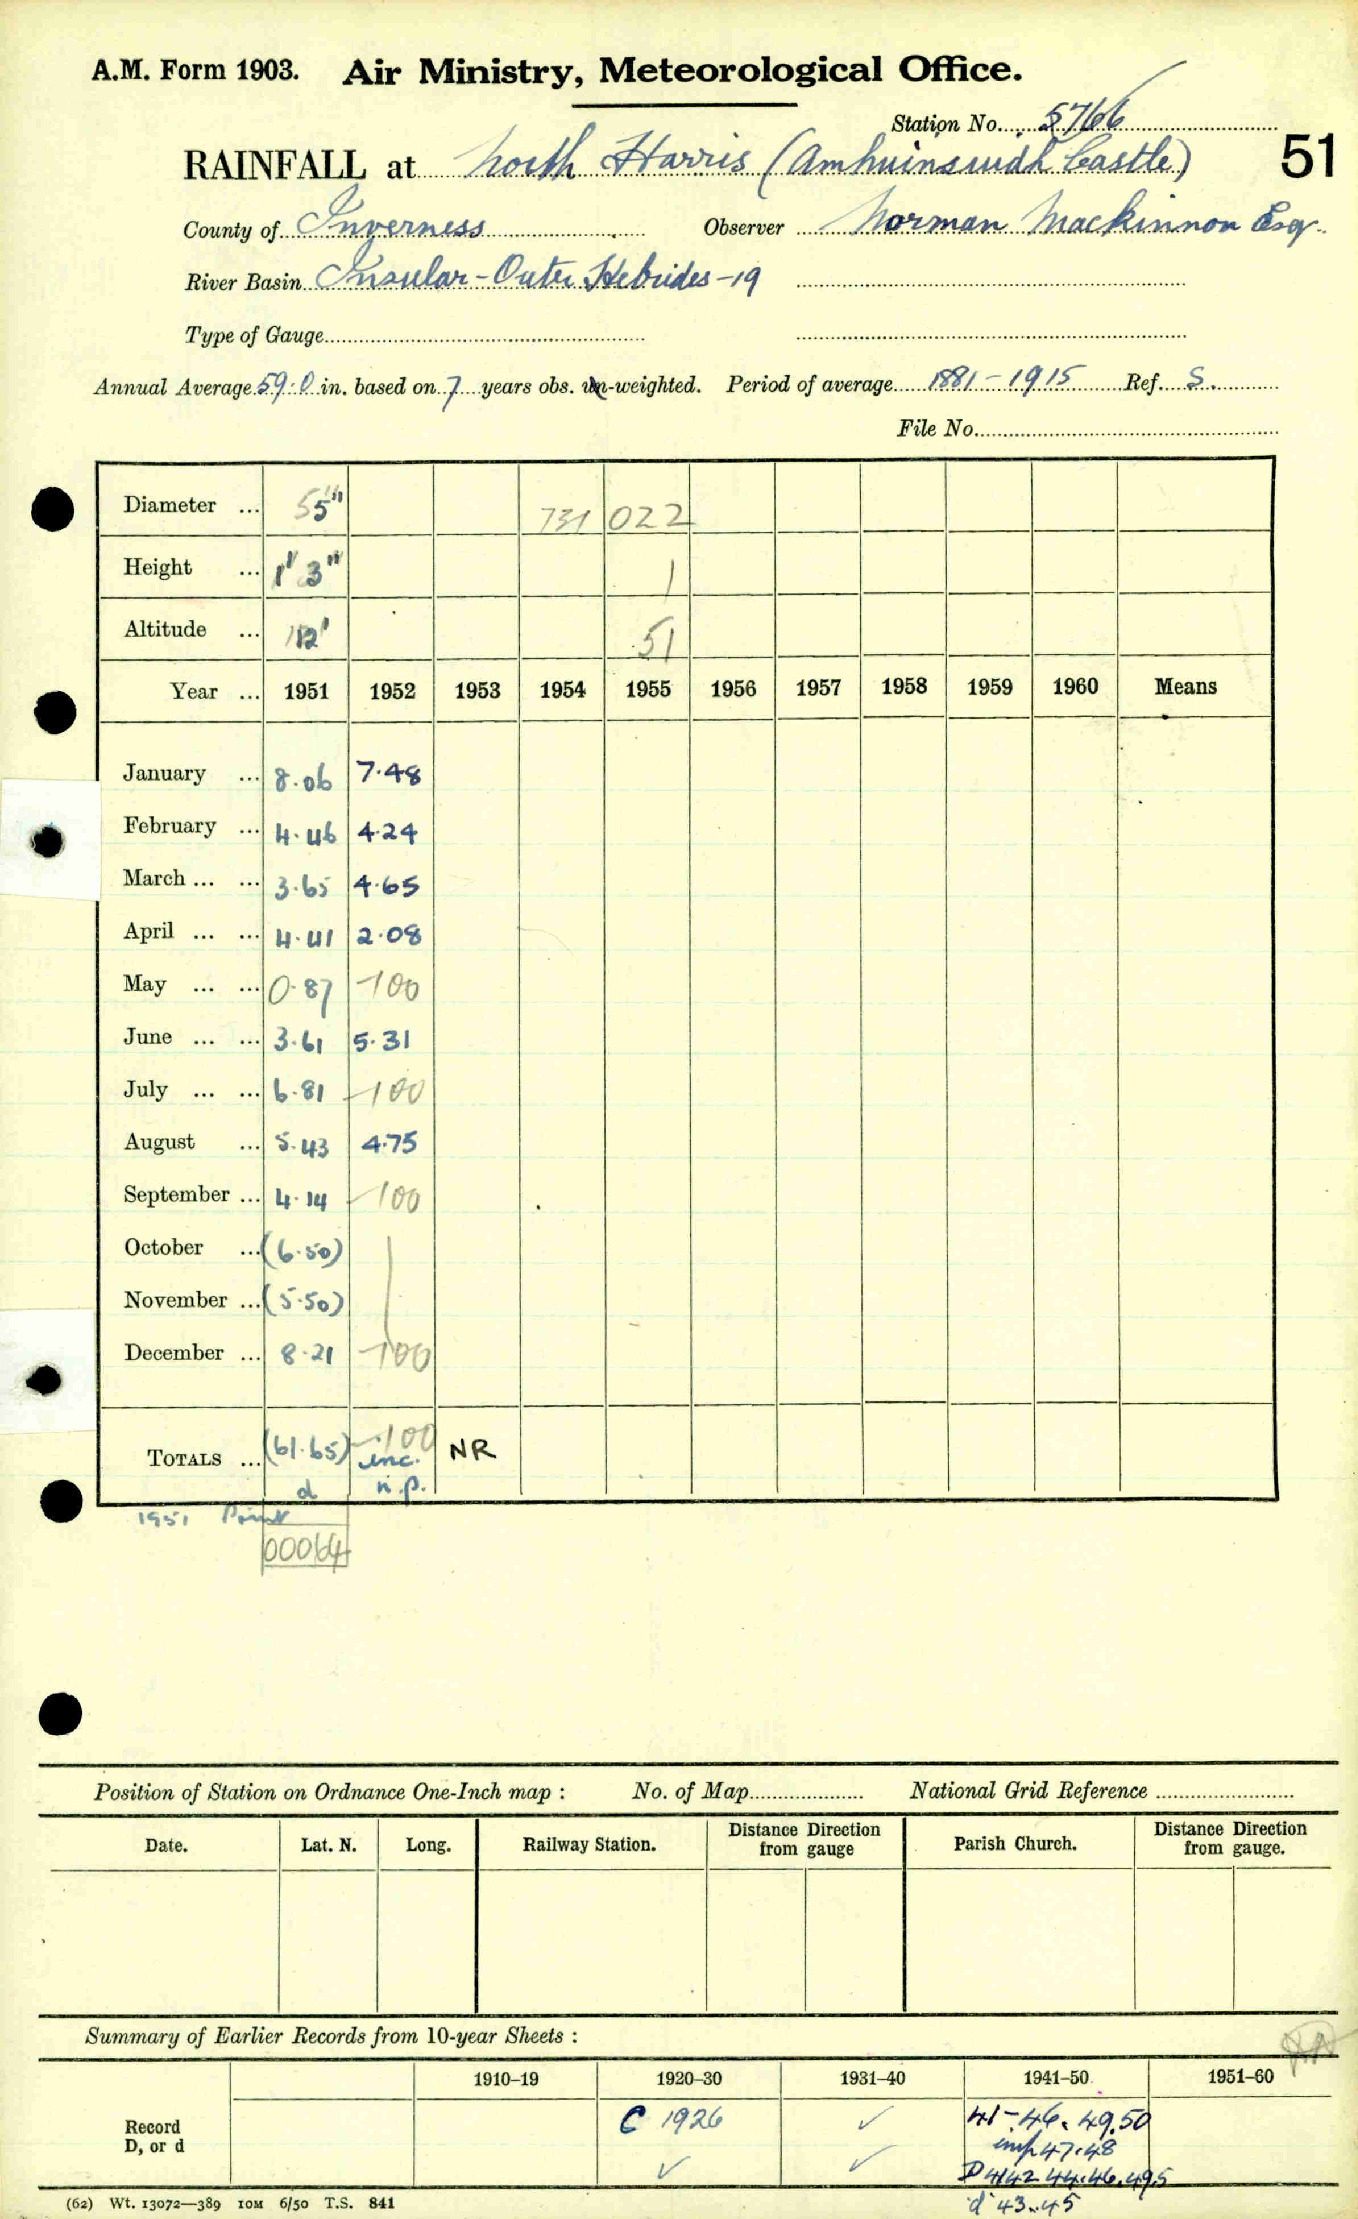 A.M. Form 1903. Air Ministry, Meteorological Office.
Station No. 5766
RAINFALL at North Harris (Amhuinsuidh Castle) 51
County of Inverness Observer Norman Mackinnon Esq.
River Basin Insular - Outer Hebrides - 19
Type of Gauge
Annual Average 59.0 in. based on 7 years obs. un-weighted. Period of average 1881 - 1915 Ref. S.
File No.
Diameter ... 5" 731 022
Height ... 1' 3" 1
Altitude ... 12' 51
Year ... 1951 1952 1953 1954 1955 1956 1957 1958 1959 1960 Means
January ... 8.06 7.48
February ... 4.46 4.24
March ... ... 3.65 4.65
April ... ... 4.41 2.08
May ... ... 0.87 -100
June ... ... 3.61 5.31
July ... ... 6.81 -100
August ... 5.43 4.75
September ... 4.14 -100
October ... (6.50)
November ... (5.50)
December ... 8.21 -100
TOTALS ... (61.65) -100 NR
inc.
d n.p.
1951 Print
00064
Position of Station on Ordnance One-Inch map : No. of Map National Grid Reference
Date. Lat. N. Long. Railway Station. Distance from Direction gauge Parish Church. Distance from Direction gauge.
Summary of Earlier Records from 10-year Sheets :
1910–19 1920–30 1931–40 1941–50 1951–60
Record C 1926 ✓ 41-46. 49.50
D, or d ✓ ✓ imp 47.48
D 41 42 44.46.495
d 43.45
(62) Wt. 13072—389 10M 6/50 T.S. 841